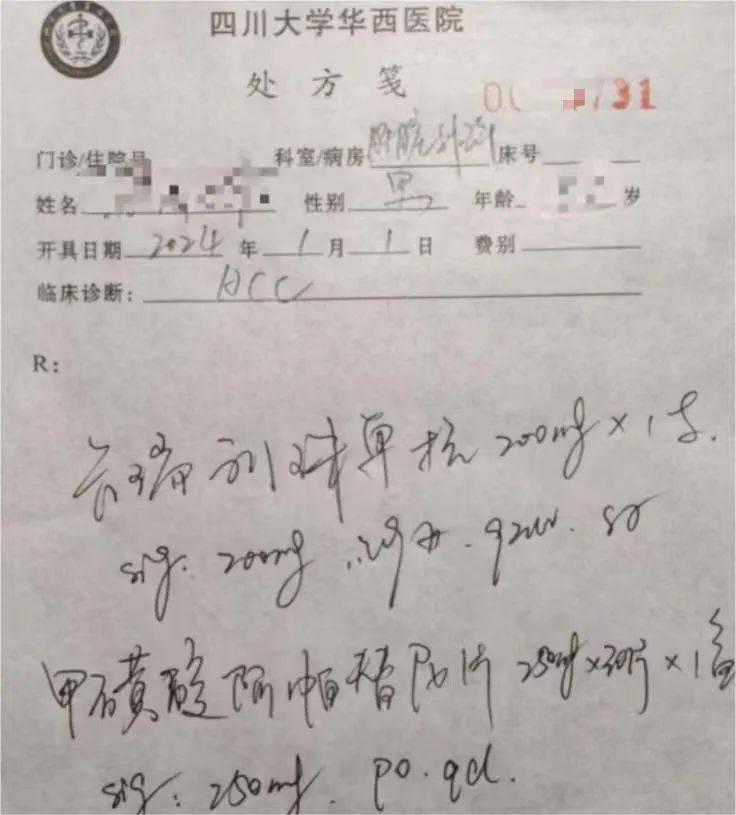 四川大学华西医院
处方笺
00 731
门诊/住院号 科室/病房 肝脏外科 床号
姓名 性别 男 年龄 岁
开具日期 2024 年 1 月 1 日 费别
临床诊断: HCC
R:
卡瑞利珠单抗 200mg × 1支.
sig: 200mg q2w. st
甲磺酸阿帕替尼片 250mg×30片×1盒
sig: 250mg. po. qd.